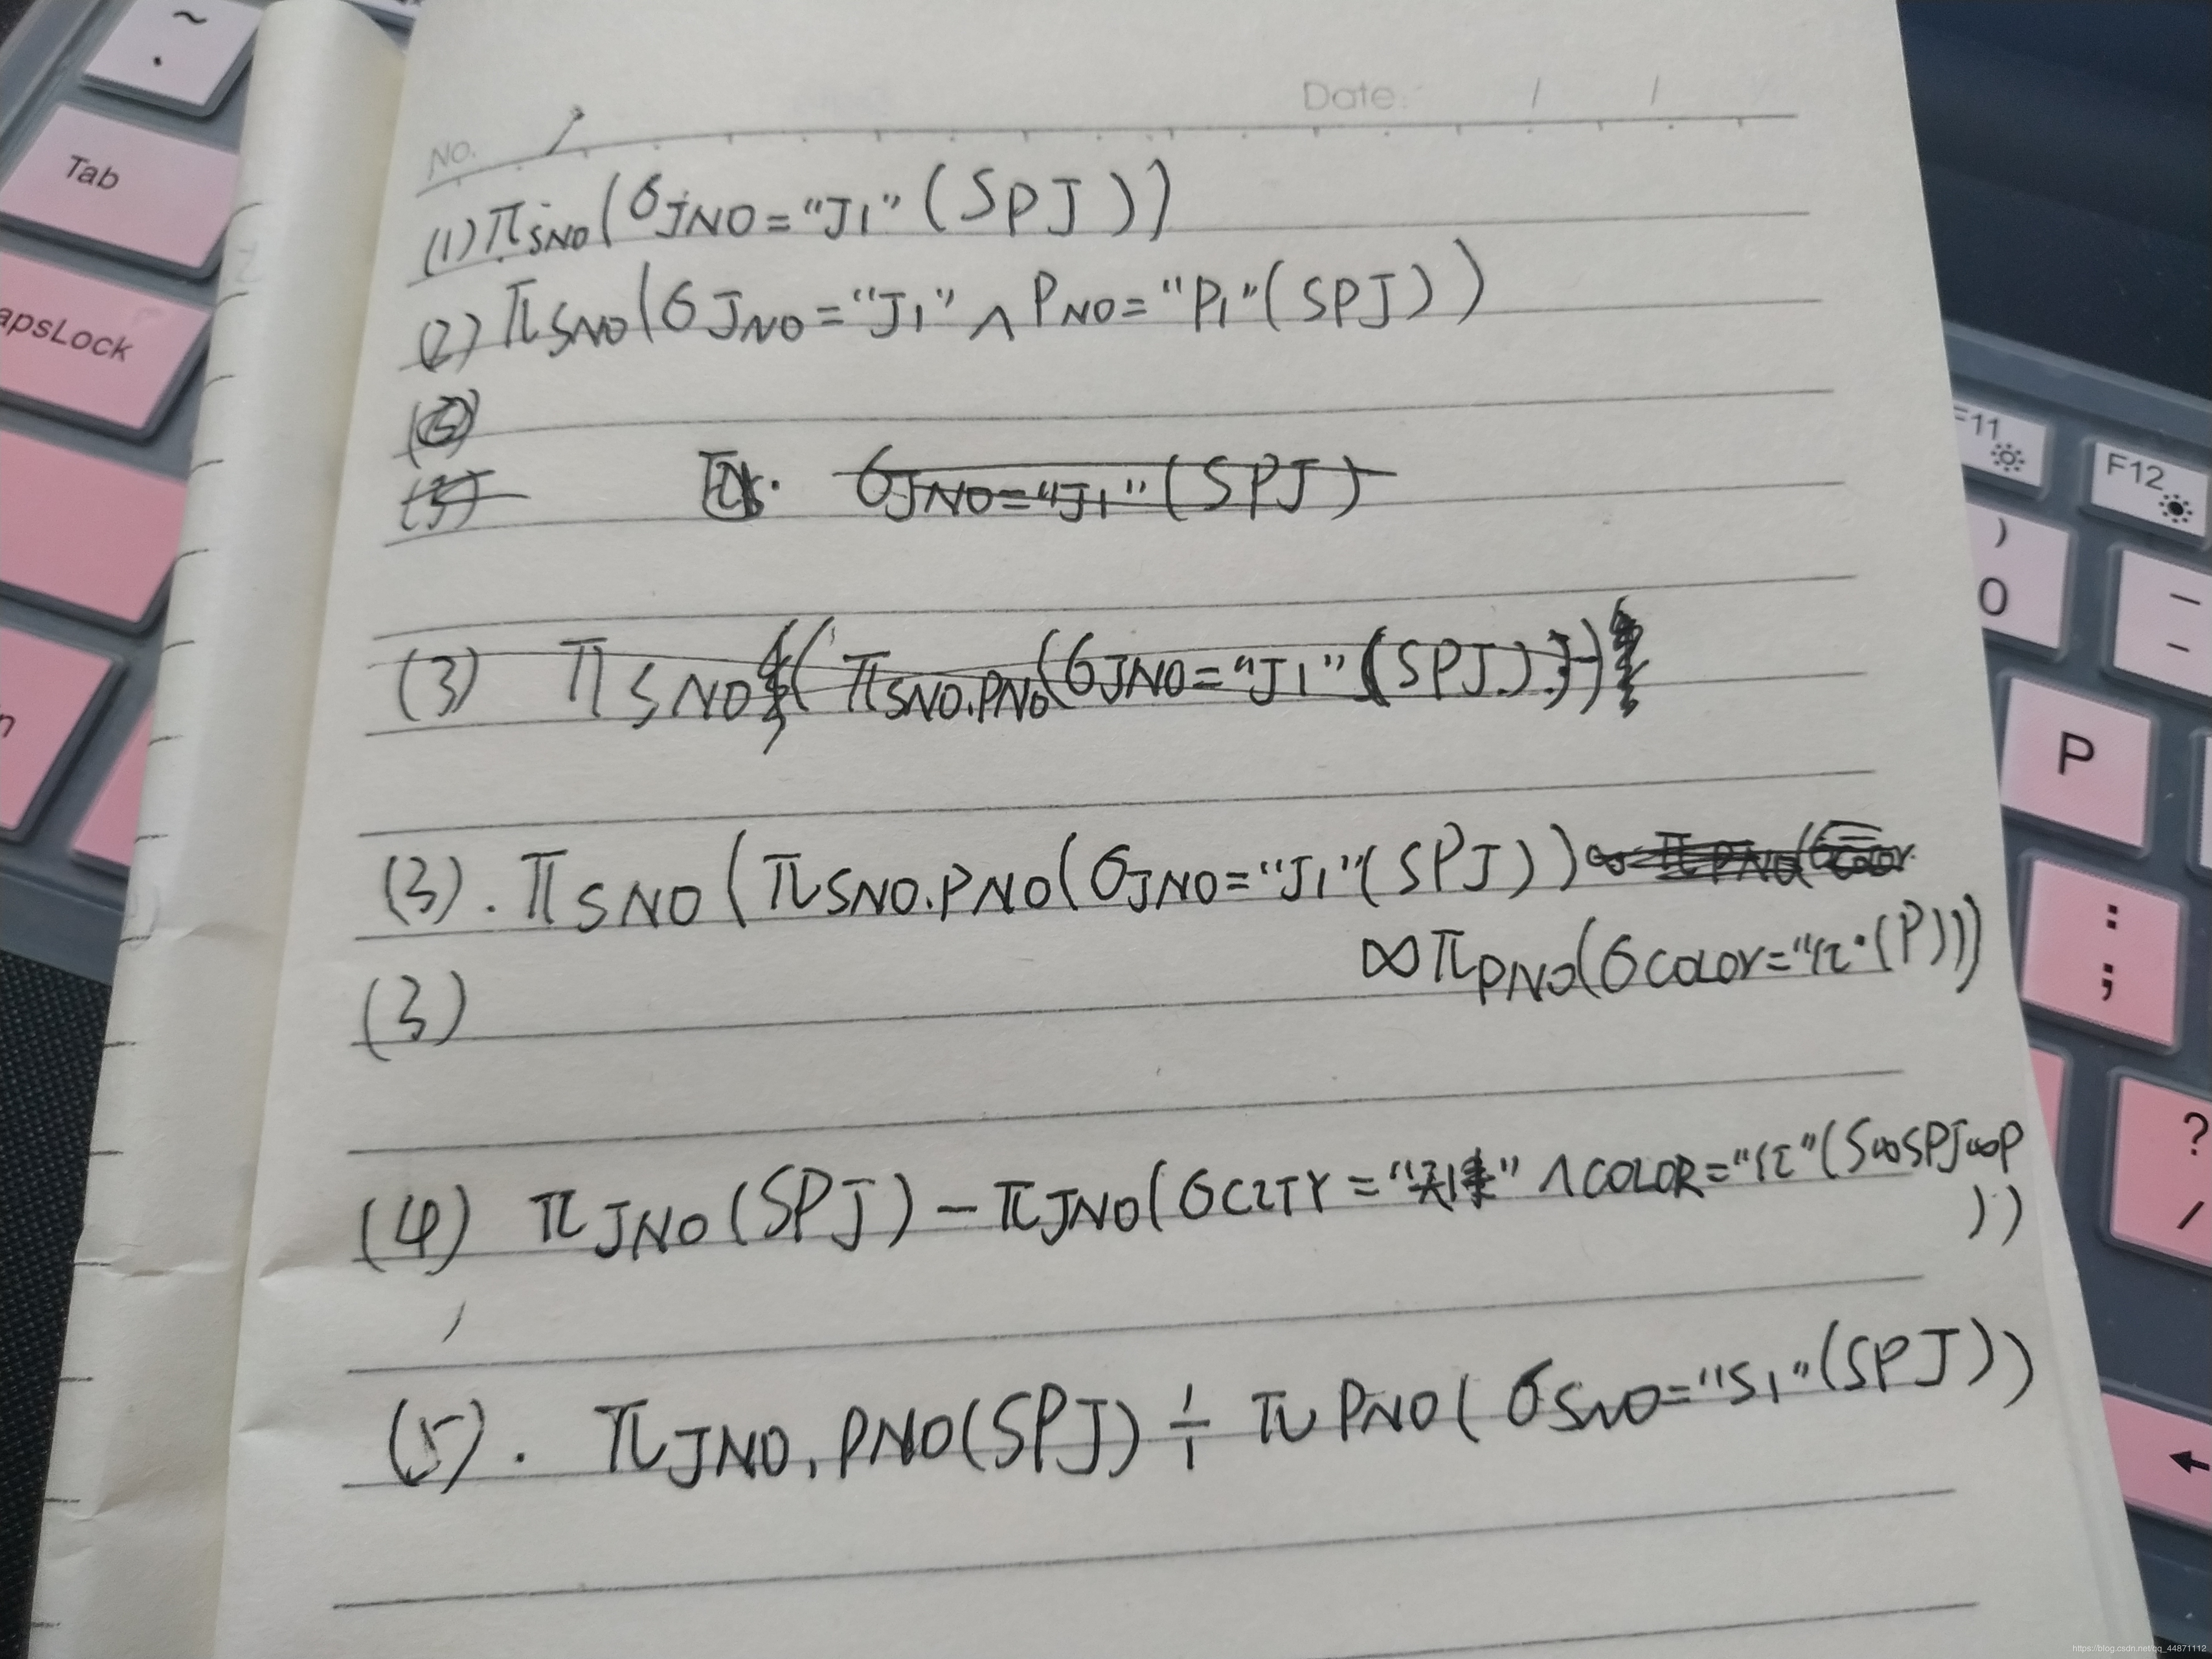 ~
.
Tab
apsLock
No.
Date: / /
(1) π SNO (σ JNO = "J1" (SPJ))
(2) π SNO (σ JNO = "J1" ∧ PNO = "P1" (SPJ))
(3)
σ JNO = "J1" (SPJ)
(3) π SNO (π SNO.PNO (σ JNO = "J1" (SPJ)))
(3). π SNO (π SNO.PNO (σ JNO = "J1" (SPJ))
∞ π PNO (σ COLOR = "红" (P)))
(3)
(4) π JNO (SPJ) − π JNO (σ CITY = "天津" ∧ COLOR = "红" (S∞SPJ∞P
))
(5). π JNO, PNO (SPJ) ÷ π PNO (σ SNO = "S1" (SPJ))
F11
F12
)
0
P
:
;
?
/
https://blog.csdn.net/qq_44871112